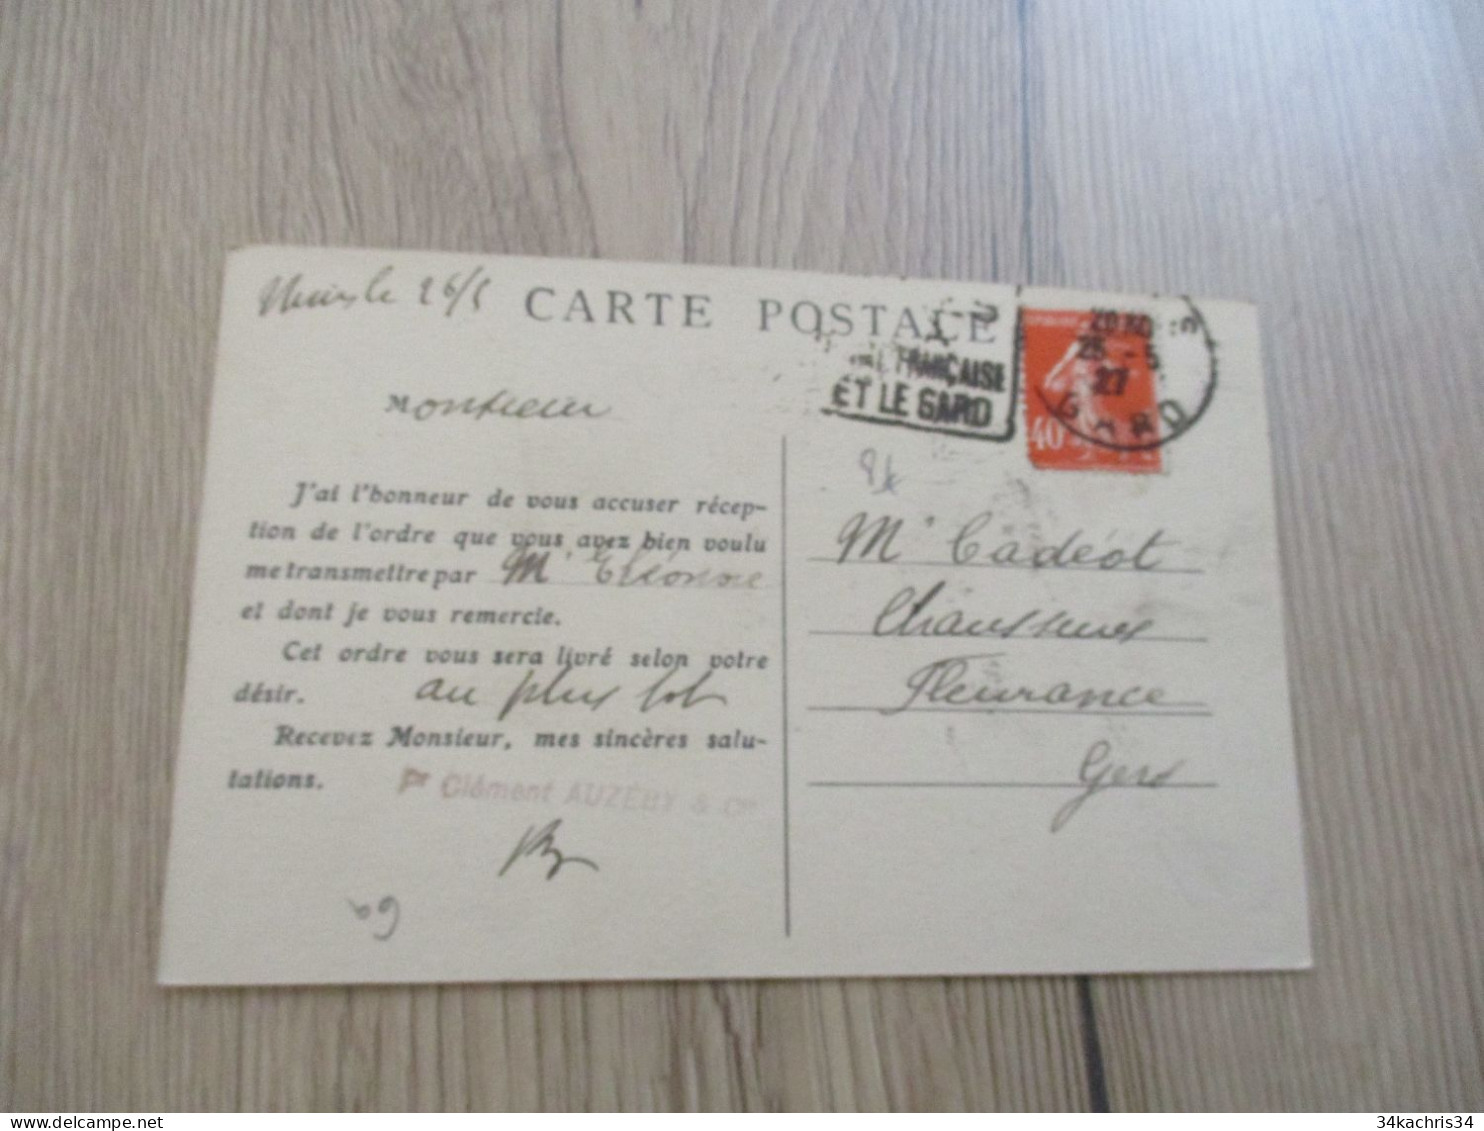 le 26/5
CARTE POSTALE
FRANÇAISE
ET LE GARD
25 - 5
27
GARD
40
Monsieur
J'ai l'honneur de vous accuser récep-
tion de l'ordre que vous avez bien voulu
me transmettre par Mr
et dont je vous remercie.
Cet ordre vous sera livré selon votre
désir. au plus tot
Recevez Monsieur, mes sincères salu-
tations.
Pr Clément AUZÉBY & Cie
69
Mr Cadéot
Chaussures
Fleurance
Gers
34kachris34